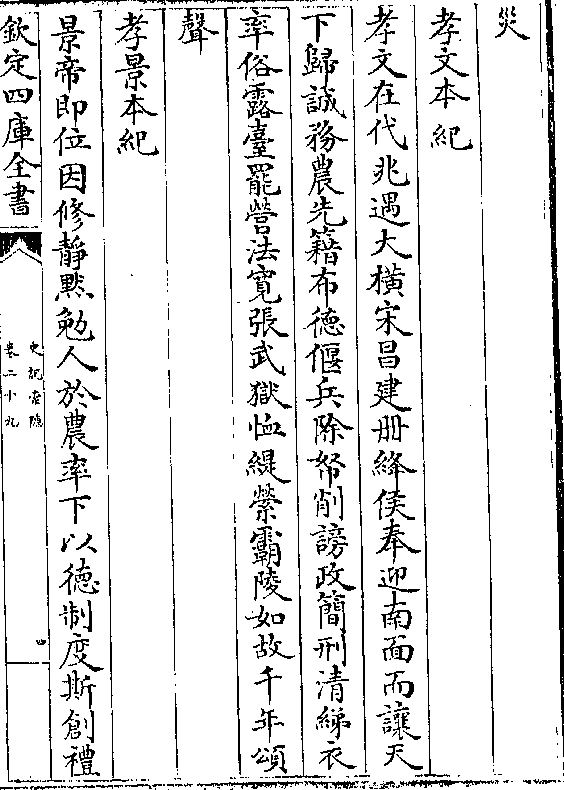 災
孝文本紀
孝文在代兆遇大橫宋昌建冊絳侯奉迎南面而讓天
下歸誠務農先籍布德偃兵除帑削謗政簡刑清綈衣
率俗露臺罷營法寛張武獄恤緹縈霸陵如故千年頌
聲
孝景本紀
景帝即位因修靜黙勉人於農率下以德制度斯創禮
欽定四庫全書
史記索隱
卷二十九
四